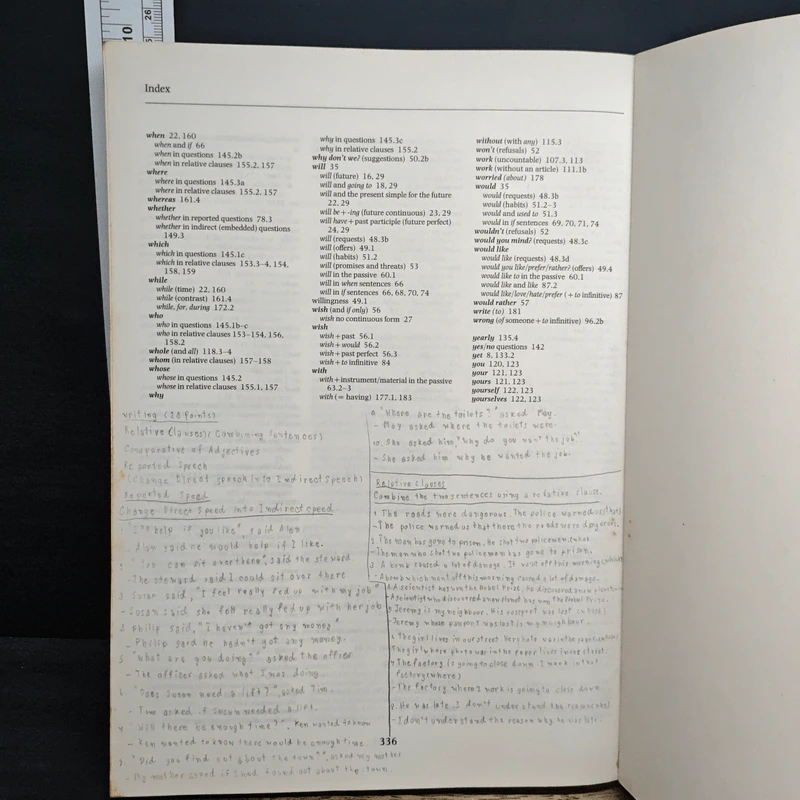 10
26
Index
when 22, 160
when and if 66
when in questions 145.2b
when in relative clauses 155.2, 157
where
where in questions 145.3a
where in relative clauses 155.2, 157
whereas 161.4
whether
whether in reported questions 78.3
whether in indirect (embedded) questions
149.3
which
which in questions 145.1c
which in relative clauses 153.3–4, 154,
158, 159
while
while (time) 22, 160
while (contrast) 161.4
while, for, during 172.2
who
who in questions 145.1b–c
who in relative clauses 153–154, 156,
158.2
whole (and all) 118.3–4
whom (in relative clauses) 157–158
whose
whose in questions 145.2
whose in relative clauses 155.1, 157
why
why in questions 145.3c
why in relative clauses 155.2
why don't we? (suggestions) 50.2b
will 35
will (future) 16, 29
will and going to 18, 29
will and the present simple for the future
22, 29
will be + -ing (future continuous) 23, 29
will have + past participle (future perfect)
24, 29
will (requests) 48.3b
will (offers) 49.1
will (habits) 51.2
will (promises and threats) 53
will in the passive 60.1
will in when sentences 66
will in if sentences 66, 68, 70, 74
willingness 49.1
wish (and if only) 56
wish no continuous form 27
wish
wish + past 56.1
wish + would 56.2
wish + past perfect 56.3
wish + to infinitive 84
with
with + instrument/material in the passive
63.2–3
with (= having) 177.1, 183
without (with any) 115.3
won't (refusals) 52
work (uncountable) 107.3, 113
work (without an article) 111.1b
worried (about) 178
would 35
would (requests) 48.3b
would (habits) 51.2–3
would and used to 51.3
would in if sentences 69, 70, 71, 74
wouldn't (refusals) 52
would you mind? (requests) 48.3c
would like
would like (requests) 48.3d
would you like/prefer/rather? (offers) 49.4
would like to in the passive 60.1
would like and like 87.2
would like/love/hate/prefer (+ to infinitive) 87
would rather 57
write (to) 181
wrong (of someone + to infinitive) 96.2b
yearly 135.4
yes/no questions 142
yet 8, 133.2
you 120, 123
your 121, 123
yours 121, 123
yourself 122, 123
yourselves 122, 123
writing (20 points)
Relative Clauses (Combining Sentences)
Comparative of Adjectives
Reported Speech
(Change Direct speech into Indirect Speech)
Reported Speed
Change Direct Speed into Indirect speed
"I'll help if you like", said Alan
- Alan said he would help if I like.
"You can sit over there", said the steward
- The steward said I could sit over there
Susan said, "I feel really fed up with my job"
- Susan said she felt really fed up with her job
Philip said, "I haven't got any money"
- Philip said he hadn't got any money.
5 "What are you doing?" asked the officer
- The officer asked what I was doing.
"Does Susan need a lift?", asked Tim.
- Tim asked if Susan needed a lift.
Will there be enough time?". Ken wanted to know
- Ken wanted to know there would be enough time
"Did you find out about the town?", asked my mother
- My mother asked if I had found out about the town.
"Where are the toilets?" asked May.
- May asked where the toilets were.
10. She asked him, "Why do you want the job"
- She asked him why he wanted the job.
Relative Clauses
Combine the two sentences using a relative clause.
1 The roads were dangerous. The police warned us
- The police warned us that there the roads were dangerous.
2 The man has gone to prison. He shot two policemen.
- The man who shot two policemen has gone to prison.
3 A bomb caused a lot of damage. It went off this morning.
- A bomb which went off this morning caused a lot of damage.
A scientist has won the Nobel Prize. He discovered a new planet
- A scientist who discovered a new planet has won the Nobel Prize.
Jeremy is my neighbour. His passport was lost
Jeremy whose passport was lost is my neighbour.
The girl lives in our street. Her photo was in the paper
The girl whose photo was in the paper lives in our street.
The factory is going to close down. I work in that
factory (where)
- The factory where I work is going to close down.
He was late. I don't understand the reason
- I don't understand the reason why he was late.
336